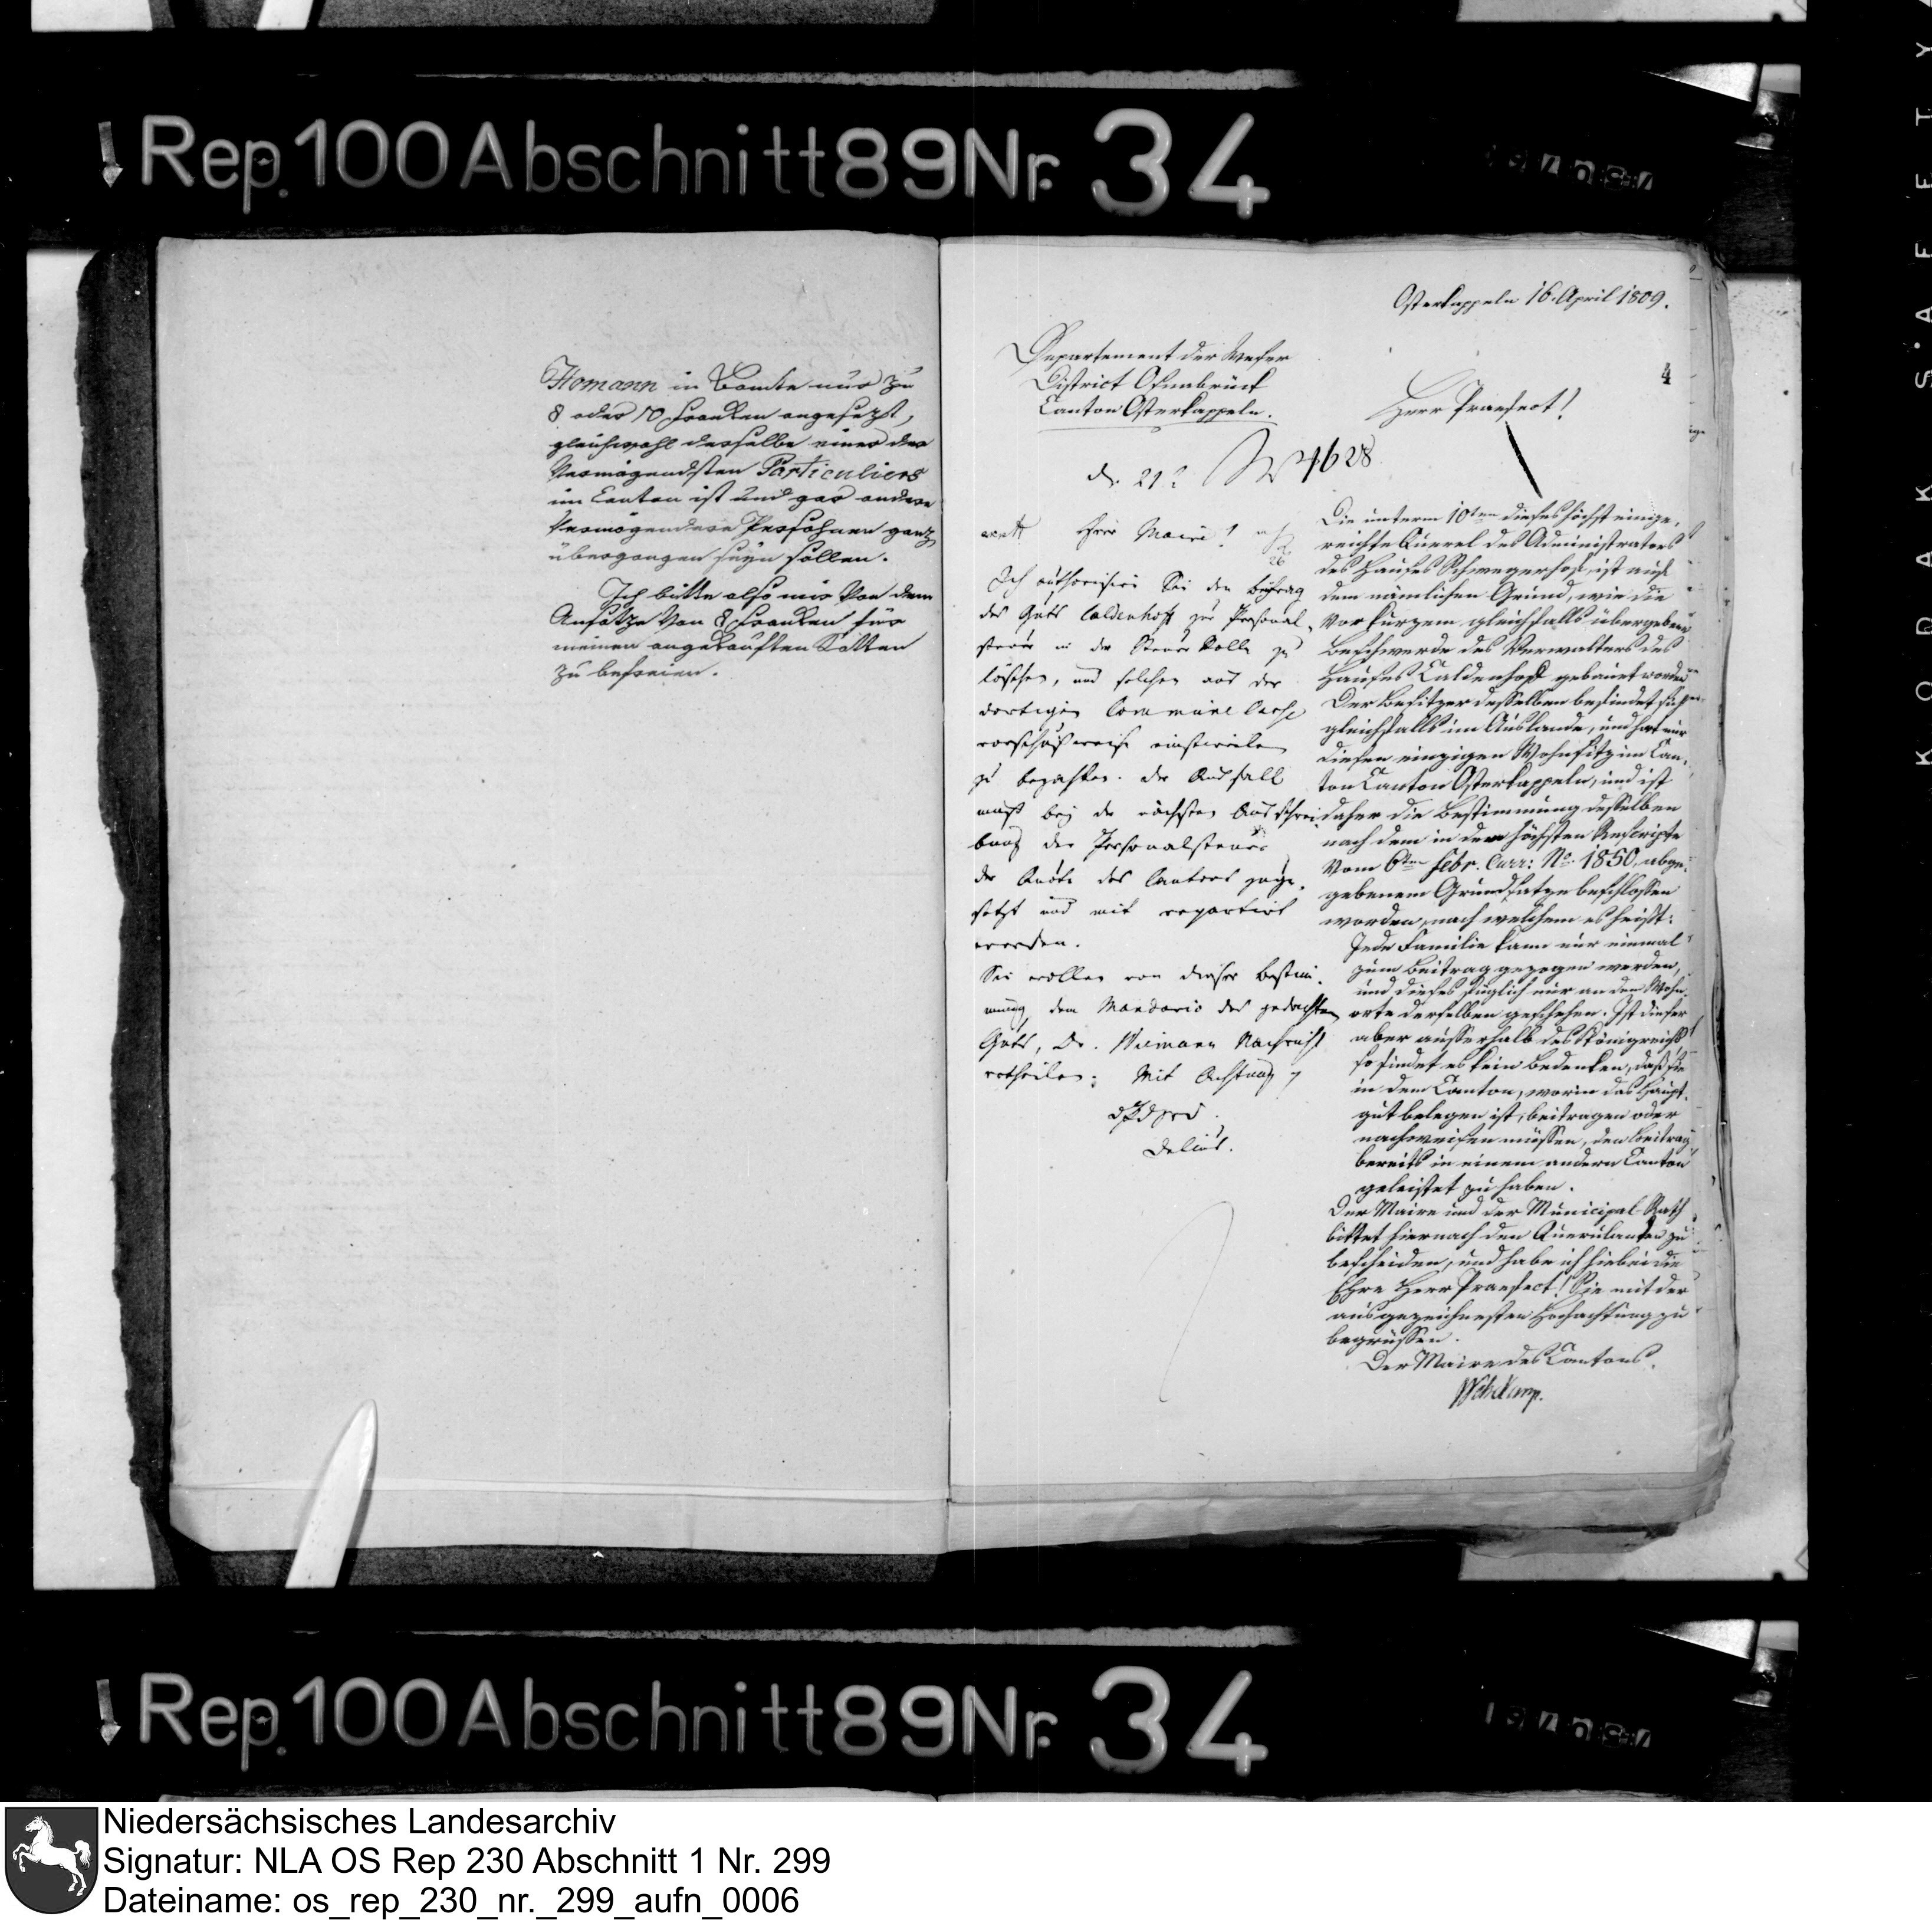 Rep. 100 Abschnitt 89 Nr. 34
Homann in Bomte nur zu
8 oder 10 Franken angesetzt,
gleichwohl derselbe einer der
Vermögendsten Particuliers
im Canton ist und gar andere
Vermögendere Persohnen ganz
übergangen seyn sollen.
Ich bitte also mir von dem
Ansatze von 8 Franken für
meinen angekauften Kotten
zu befreien.
Osterkappeln 16. April 1809.
4
Departement der Weser
District Osnabrück
Canton Osterkappeln.
Herr Praefect!
d. 21
N 4628
Die unterm 10ten dieses höchst einge,
reichte Querel des Administrators
des Hauses Schwegerhof, ist auf
dem nämlichen Grund, wie die
vor kurzem gleichfalls übergebene
Beschwerde des Verwalters des
Hauses Caldenhof gebauet worden
Der Besitzer desselben befindet sich
gleichfalls im Auslande, und hat nur
diesen einzigen Wohnsitz im Can,
ton Canton Osterkappeln, und ist
daher die Bestimmung desselben
nach dem in dem höchsten Rescripte
vom 6ten Febr. curr: No. 1850, abge,
gebenem Grundsatze beschlossen
worden, nach welchem es heist:
Jede Familie kann nur einmal
zum Beitrag gezogen werden,
und dieses füglich nur an dem Wohn,
orte derselben geschehen. Ist dieser
aber ausserhalb des Königreichs
so findet es kein Bedenken, daß sie
in dem Canton, worin das Haupt,
gut belegen ist, beitragen oder
nachweisen müssen, den Beitrag
bereits in einem andern Canton
geleistet zu haben.
Der Maire und der Municipal-Rath
bittet hiernach den Querulanten zu
bescheiden, und habe ich hiebei die
Ehre Herr Praefect! Sie mit der
ausgezeichnesten Hochachtung zu
begrüssen.
Der Maire des Cantons.
Herr Maire!
26
Ich authorisire Sie den Beytrag
des Guts Caldenhoff zur Personal,
steuer in der Steuer Rolle zu
löschen, und solchen aus der
dortigen Commüne Casse
vorschußweise einstweilen
zu bezahlen. Der Ausfall
muß bey der nächsten Ausschrei,
bung der Personalsteuer
der Quote des Cantons zuge,
setzt und mit repartirt
werden.
Sie wollen von dieser Bestim,
mung dem Mandario des gedachten
Guts, Dr. Nachricht
ertheilen. Mit Achtung
Delius.
Rep. 100 Abschnitt 89 Nr. 34
KODAK SAFETY
Niedersächsisches Landesarchiv
Signatur: NLA OS Rep 230 Abschnitt 1 Nr. 299
Dateiname: os_rep_230_nr._299_aufn_0006